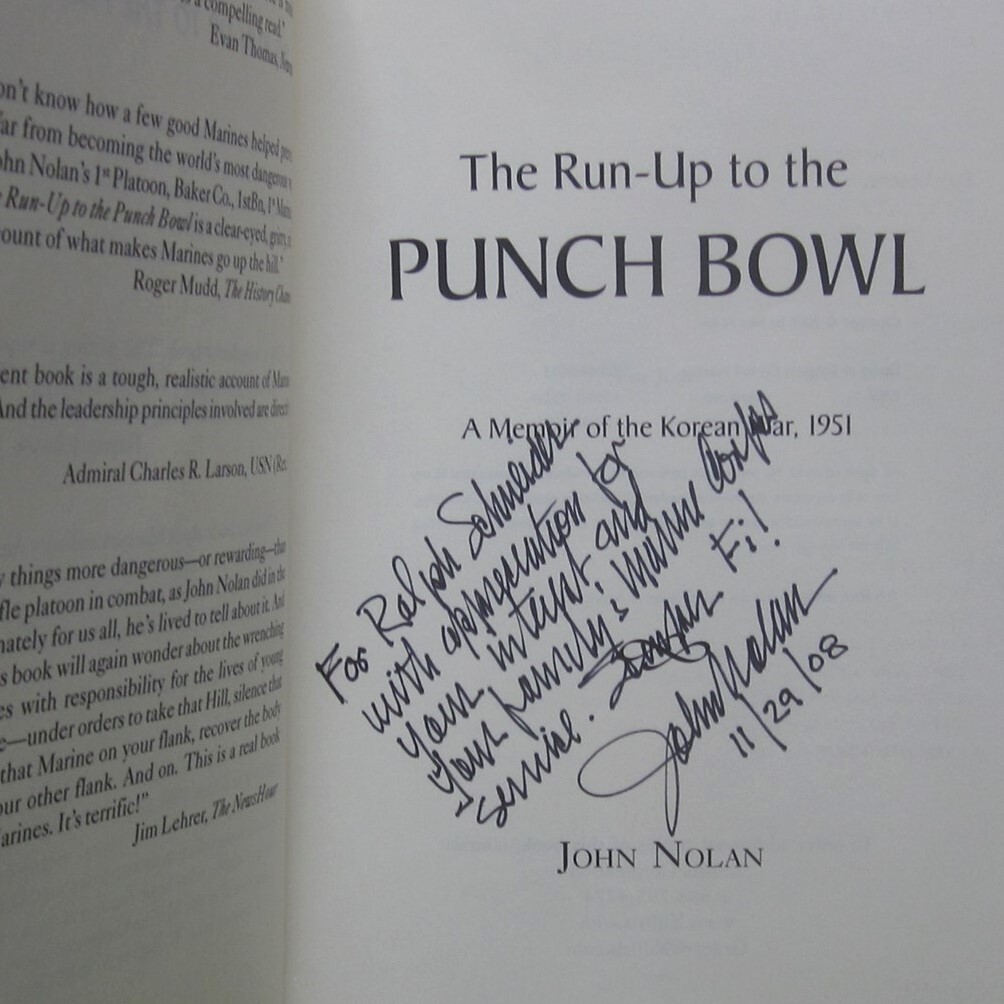 a compelling read.'
Evan Thomas,
on't know how a few good Marines helped
far from becoming the world's most dangerous
ohn Nolan's 1st Platoon, Baker Co., 1stBn, 1st
Run-Up to the Punch Bowl is a clear-eyed,
ount of what makes Marines go up the hill.'
Roger Mudd, The History
ent book is a tough, realistic account of
And the leadership principles involved are
Admiral Charles R. Larson, USN
things more dangerous—or rewarding—
fle platoon in combat, as John Nolan did in the
nately for us all, he's lived to tell about it. And
s book will again wonder about the wrenching
es with responsibility for the lives of young
e—under orders to take that Hill, silence that
that Marine on your flank, recover the body
our other flank. And on. This is a real book
arines. It's terrific!"
Jim Lehrer, The NewsHour
The Run-Up to the
PUNCH BOWL
A Memoir of the Korean War, 1951
For Ralph Schneider
with appreciation for
your interest and
your family's Marine Corps
service. Semper Fi!
John Nolan
11/29/08
JOHN NOLAN